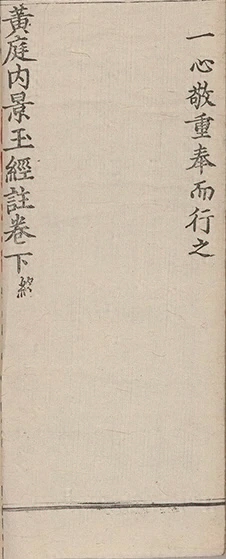 一心敬重奉而行之
黃庭內景玉經註卷下終